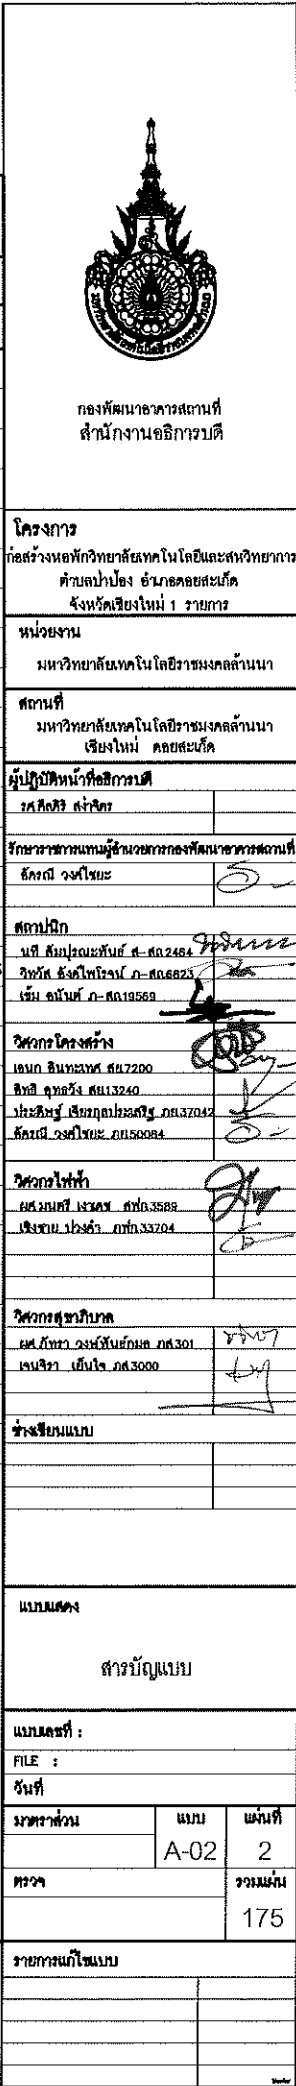 กองพัฒนาอาคารสถานที่
สำนักงานอธิการบดี
โครงการ
ก่อสร้างหอพักวิทยาลัยเทคโนโลยีและสหวิทยาการ
ตำบลป่าป้อง อำเภอดอยสะเก็ด
จังหวัดเชียงใหม่ 1 รายการ
หน่วยงาน
มหาวิทยาลัยเทคโนโลยีราชมงคลล้านนา
สถานที่
มหาวิทยาลัยเทคโนโลยีราชมงคลล้านนา
เชียงใหม่ ดอยสะเก็ด
ผู้ปฏิบัติหน้าที่อธิการบดี
รศ.ศีลศิริ สง่าจิตร
รักษาราชการแทนผู้อำนวยการกองพัฒนาอาคารสถานที่
อัครณี วงศ์ไชยะ
สถาปนิก
นที สัมปุรณะพันธ์ ส-สถ2464
วิทวัส อังศ์ไพโรจน์ ภ-สถ6823
เข้ม อนันต์ ภ-สถ19569
วิศวกรโครงสร้าง
เอนก อินทะเทศ สย7200
สิทธิ อุทธวัง สย13240
ประดิษฐ์ เจียรกุลประเสริฐ ภย37042
อัครณี วงศ์ไชยะ ภย50084
วิศวกรไฟฟ้า
ผศ.มนตรี เงาเดช สฟก3589
เชิงชาย ปวงคำ ภฟก33704
วิศวกรสุขาภิบาล
ผศ.ภัทรา วงษ์พันธ์กมล ภส301
เจนจิรา เย็นใจ ภส3000
ช่างเขียนแบบ
แบบแสดง
สารบัญแบบ
แบบเลขที่ :
FILE :
วันที่
มาตราส่วน แบบ แผ่นที่
A-02 2
ตรวจ รวมแผ่น
175
รายการแก้ไขแบบ